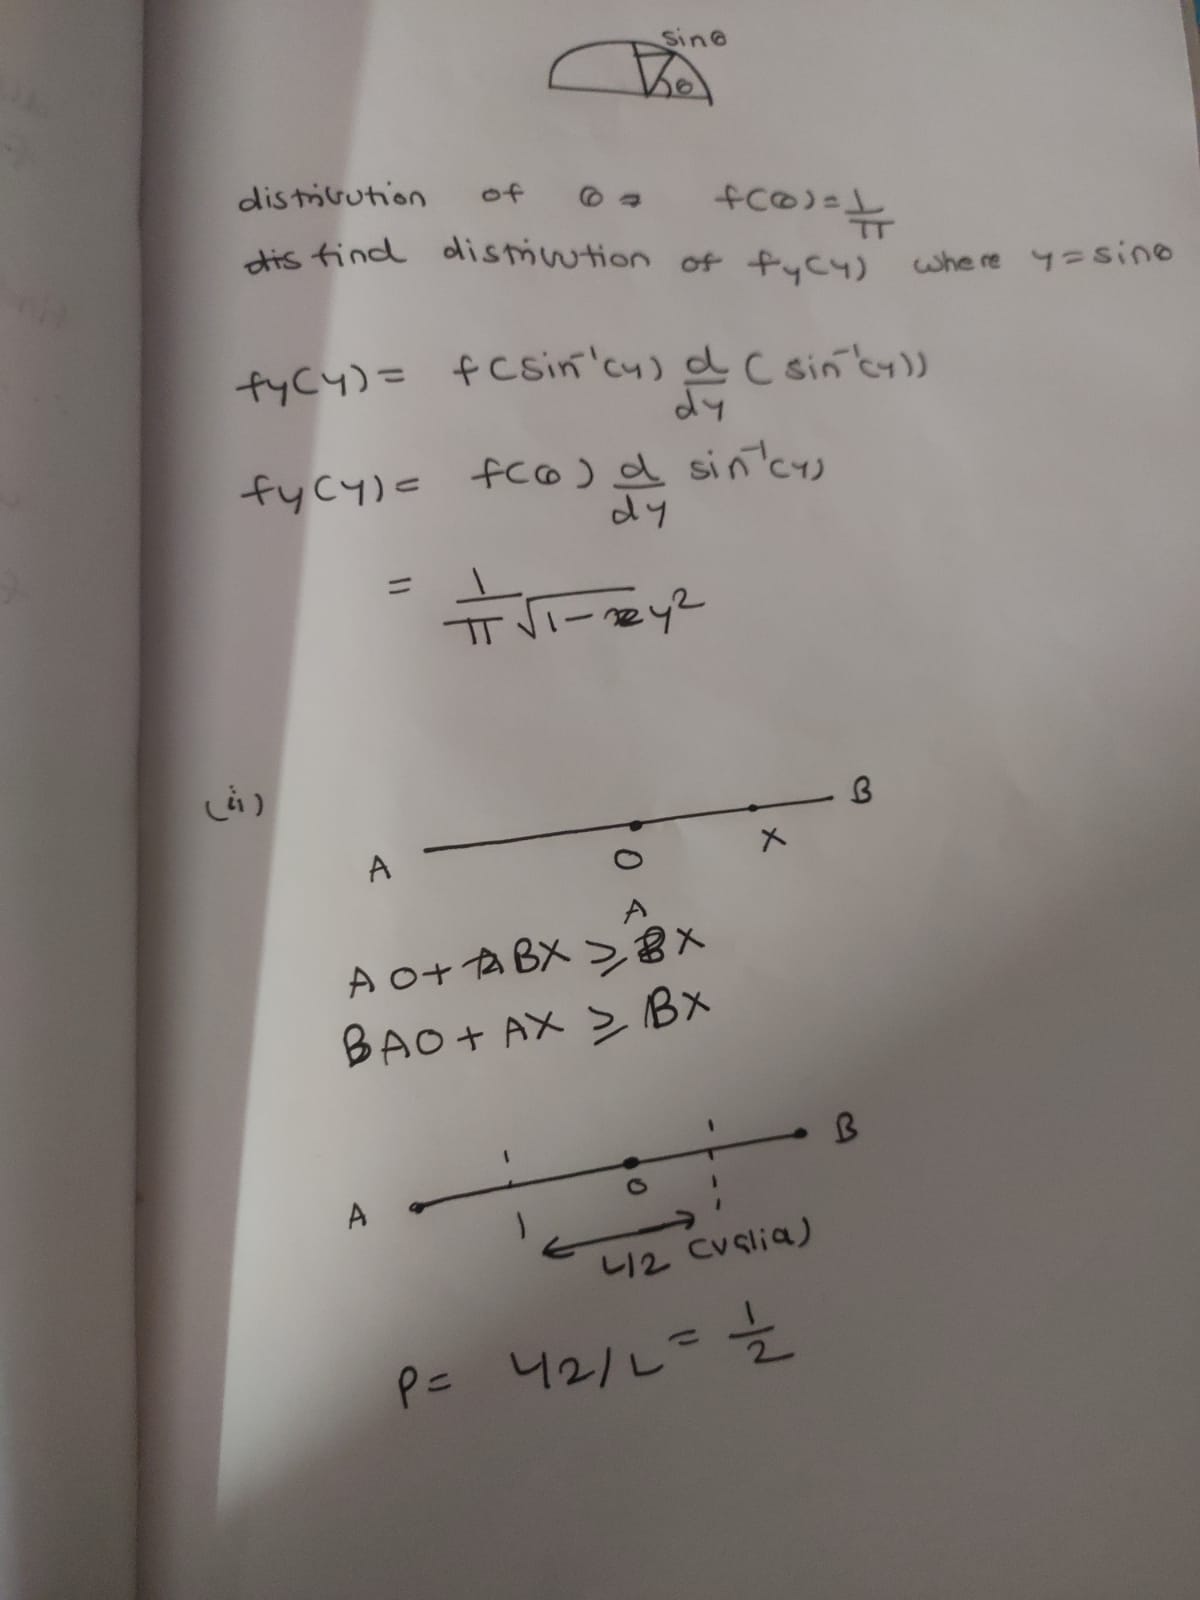 sinθ
θ
distribution of θ = f(θ) = 1/π
dis find distribution of fy(y) where y = sinθ
fy(y) = f(sin⁻¹(y)) d/dy (sin⁻¹(y))
fy(y) = f(θ) d/dy sin⁻¹(y)
= 1/π√1-y²
(ii)
A O X B
A
AO + BX ≥ X
BAO + AX ≥ BX
A O B
L/2 (valid)
P = L/2/L = 1/2